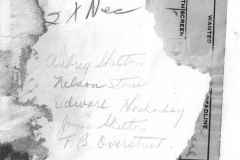 2 X Nec
Audrey Skelton
Nelson Stone
Edward Hookaday
James Skelton
T B Overstreet
SCREEN
WANTED
DEADLINE